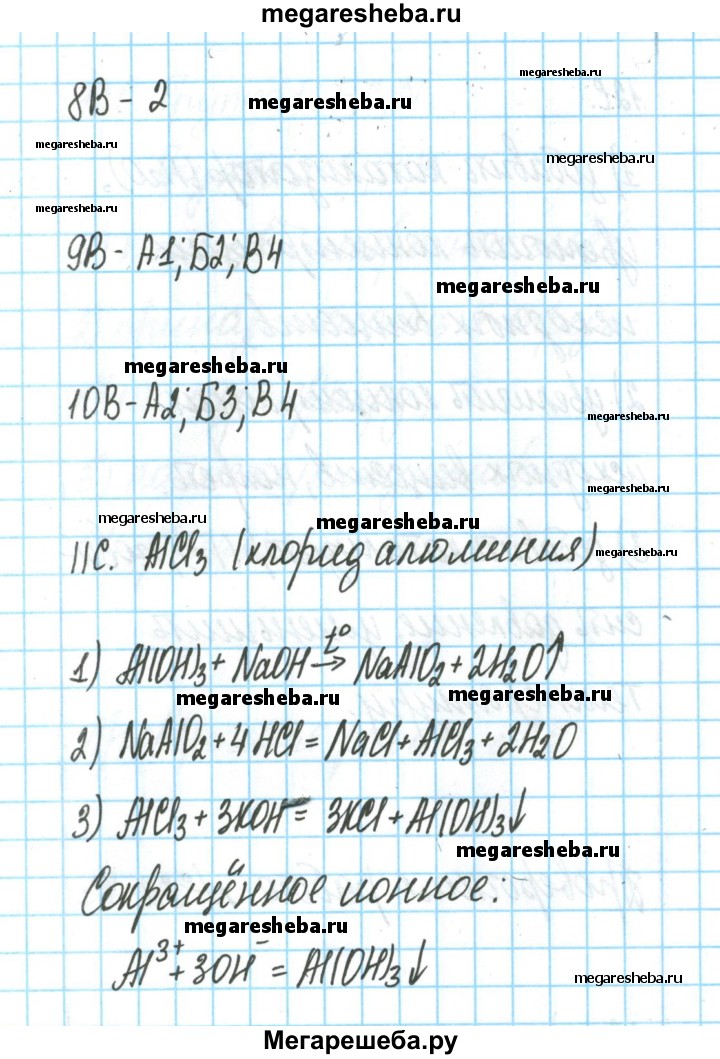 megaresheba.ru
megaresheba.ru
8В - 2 megaresheba.ru
megaresheba.ru
megaresheba.ru
megaresheba.ru
9В - А1; Б2; В4
megaresheba.ru
megaresheba.ru
10В - А2; Б3; В4
megaresheba.ru
megaresheba.ru
megaresheba.ru
megaresheba.ru
11С. AlCl₃ (хлорид алюминия)
megaresheba.ru
1) Al(OH)₃ + NaOH →t° NaAlO₂ + 2H₂O↑
megaresheba.ru
megaresheba.ru
2) NaAlO₂ + 4HCl = NaCl + AlCl₃ + 2H₂O
3) AlCl₃ + 3KOH = 3KCl + Al(OH)₃↓
megaresheba.ru
Сокращённое ионное:
megaresheba.ru
Al³⁺ + 3OH⁻ = Al(OH)₃↓
megaresheba.ru
Мегарешеба.ру